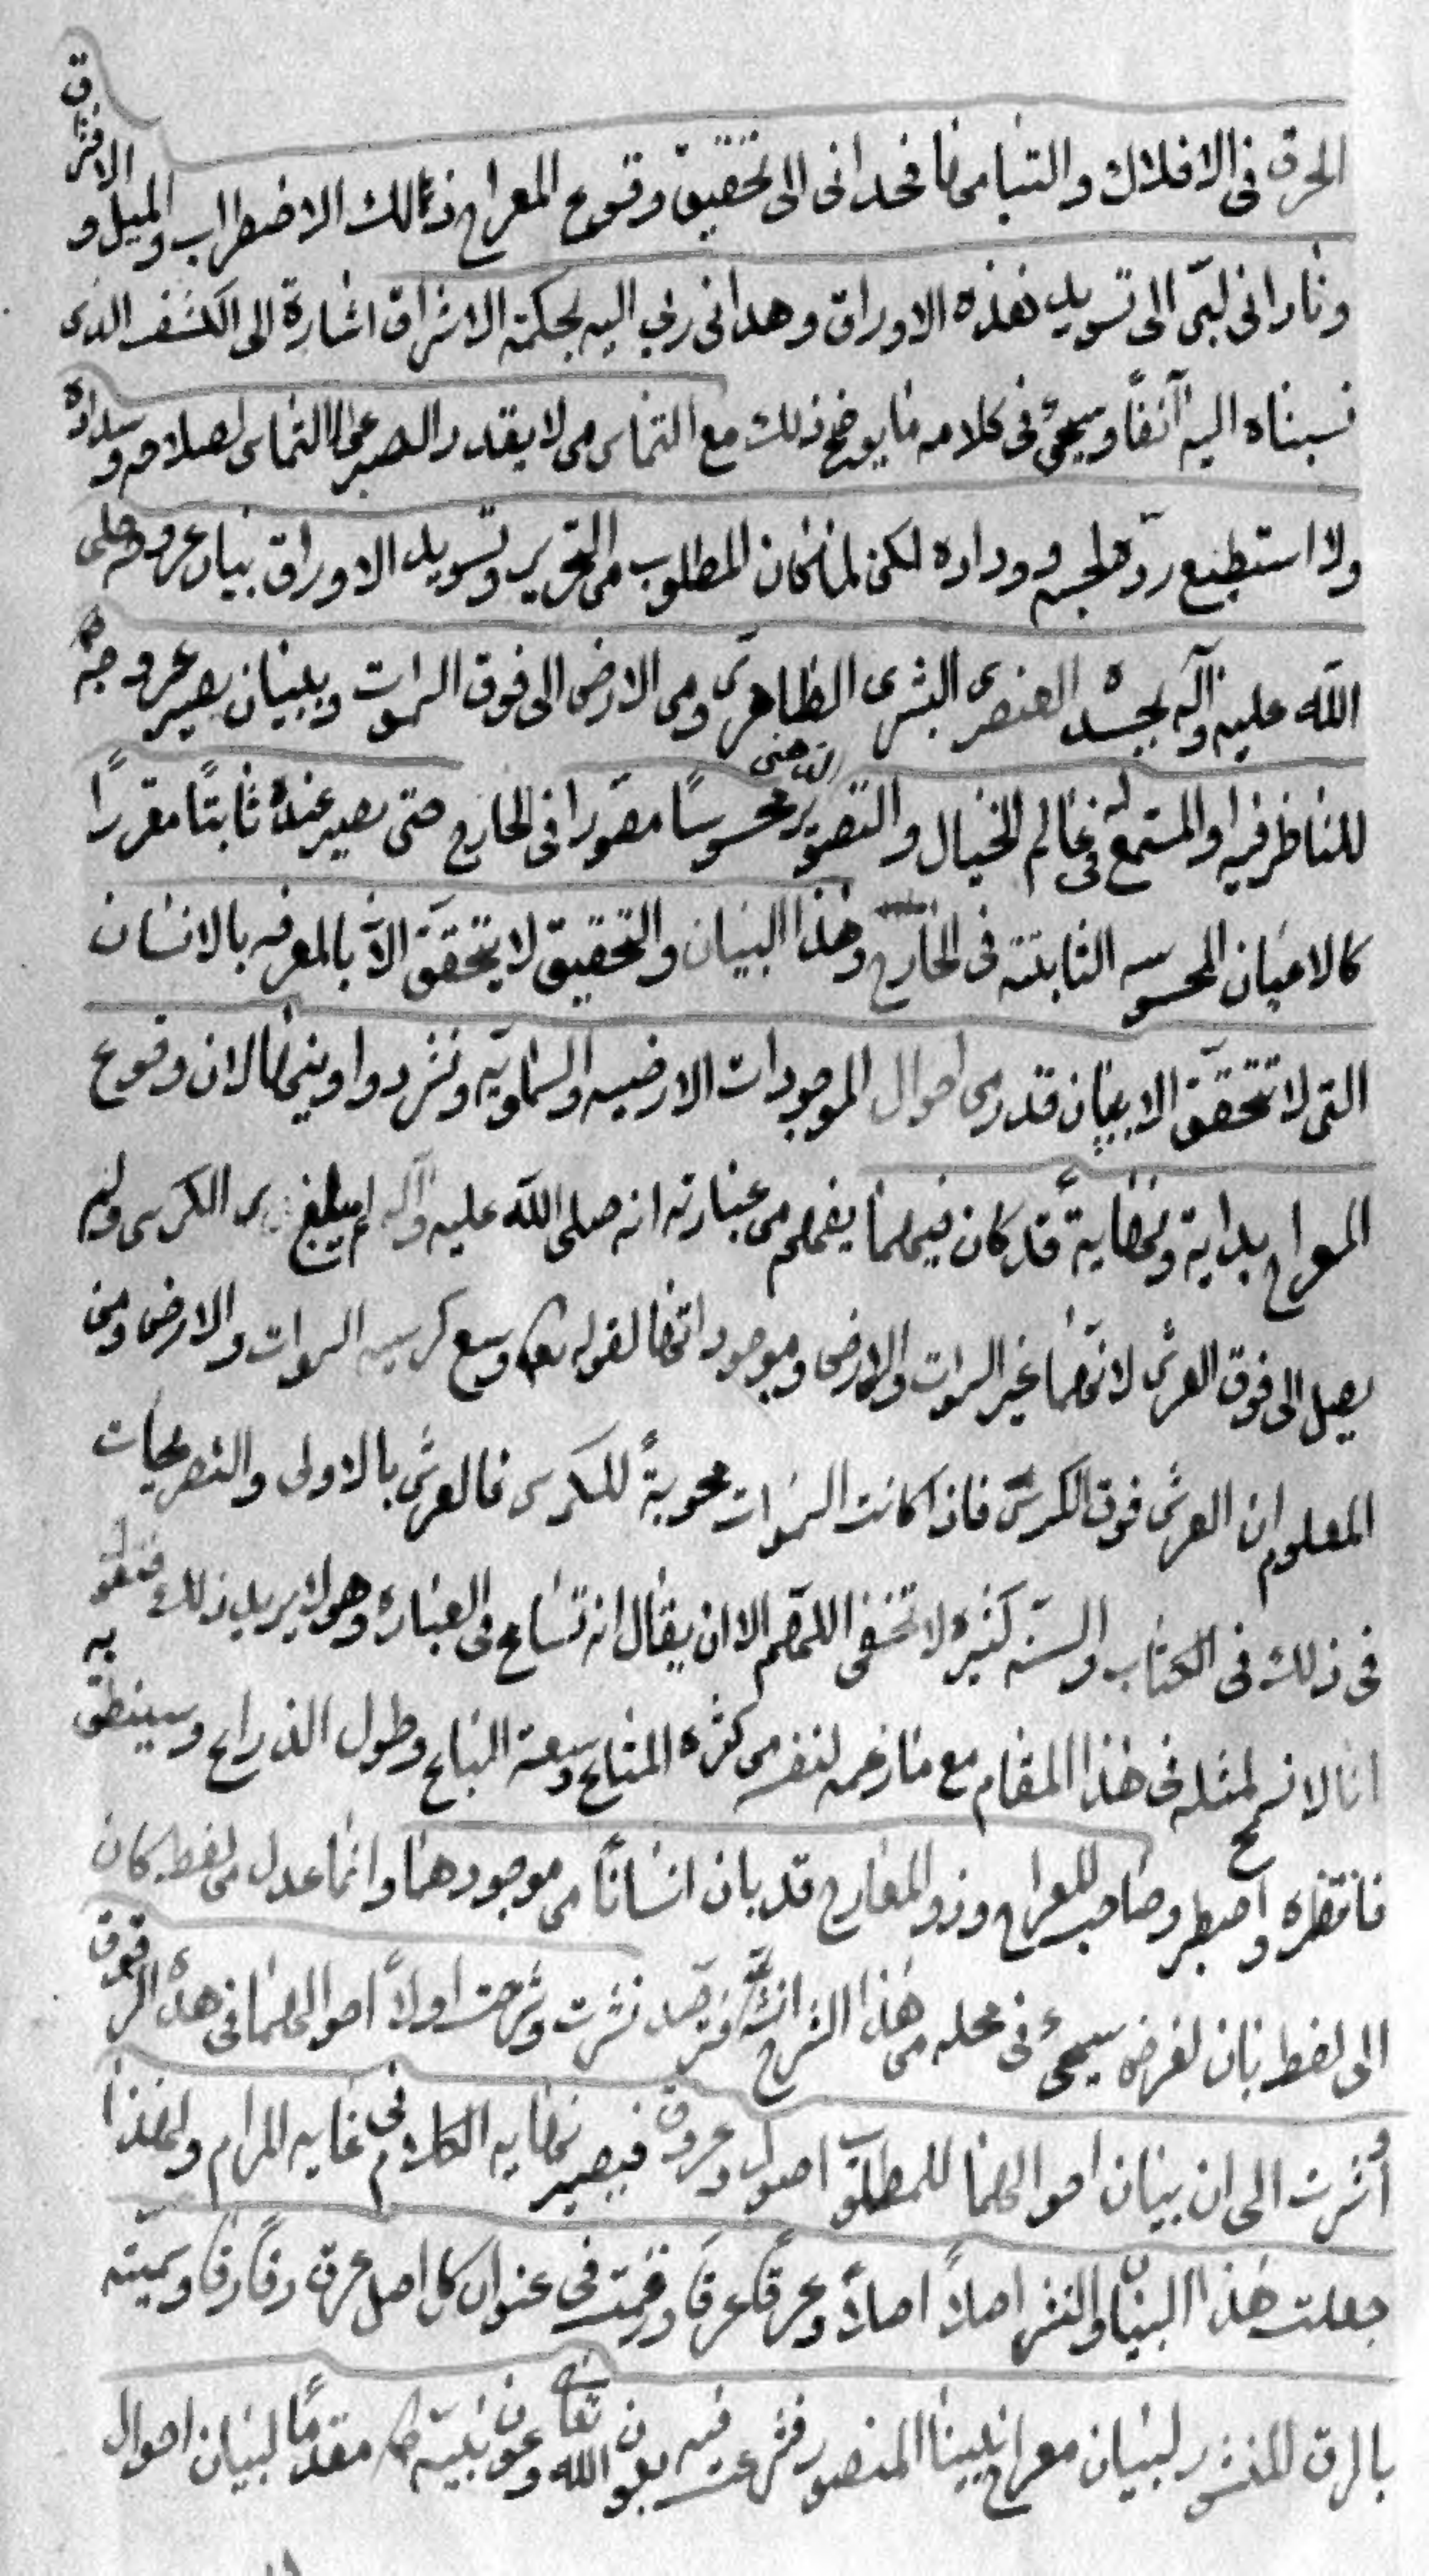 الخرق فی الافلاك والتیامها فحدانی الی تحقیق وقوع المعراج ذلك الاضطراب والمیل و الافتراق
ونادانی لبّی الی تسوید هذه الاوراق وهدانی ربی الیه بحكمة الاشراق اشارة الی الكشف الذی
نسبناه الیه آنفاً وسیجیٔ فی كلامه ما یوضح ذلك مع التماس من لا یقدر الصبر علی التماس لصلاحه وسداده
ولا استطیع ردّه لحبه ووداده لكن لما كان المطلوب من التحریر وتسوید الاوراق بیان عروجه صلی
الله علیه وآله بجسده العنصری البشری الظاهری ومن الارض الی فوق السموات وبیان یصیر عروجه
للناظر فیه او المستمع له فی عالم الخیال والتصویر الذهنی محسوسًا مصورا فی الخارج حتی یصیر عنده ثابتًا مقررًا
كالاعیان المحسوسه الثابتة فی الخارج وهذا البیان والتحقیق لا یتحقق الّا بالمعرفه بالانسان
التی لا تتحقق الا ببیان قدر من احوال الموجودات الارضیه والسماویّه ونشر دواوینها لان وقوع
المعراج بدایة ونهایةً قد كان فیهما یفهم من عبارته انه صلی الله علیه وآله لم یبلغ الكرسی ولم
یصل الی فوق العرش لانهما غیر السموات والارض وموجوداتها لقوله تع وسع كرسیه السموات والارض ومن
المعلوم ان العرش فوق الكرسیّ فاذا كانت السموات محویةً للكرسی فالعرش بالاولی والتصریحات
فی ذلك فی الكتاب والسنّه كثیره لا تخفی اللهم الا ان یقال انه تسامح فی العباره وهو لا یرید ذلك فنقول
انا لا نسمح لمثله فی هذا المقام مع ما زعمه لنفسه من كثره المتاع وسعة الباع وطول الذراع وسینطق به
فانتظره واصطبر وصاحب المعراج وذو المعارج قد بان انسانًا من موجودهما وانما عدل من لفظ كان
الی لفظ بان لغرض سیجیٔ فی محله من هذا الشرح انشاء نشرت وشرحت اولاً احوالهما فی هذه الرقوق
واشرت الی ان بیان احوالهما للمطلوب اصول وعروق فیصیر نهایه الكلام فی غایه المرام ولهذا
جعلت هذا البیان والنشر اصلاً اصلاً وعرقًا عرقًا ورقمت فی عنوان كل اصل عرق رقًا رقًا وسمیّته
بالرق المنشور لبیان معراج نبینا المنصور فشرعت فیه بعون الله تعالی وعون نبیّه مقدمًا لبیان احوال